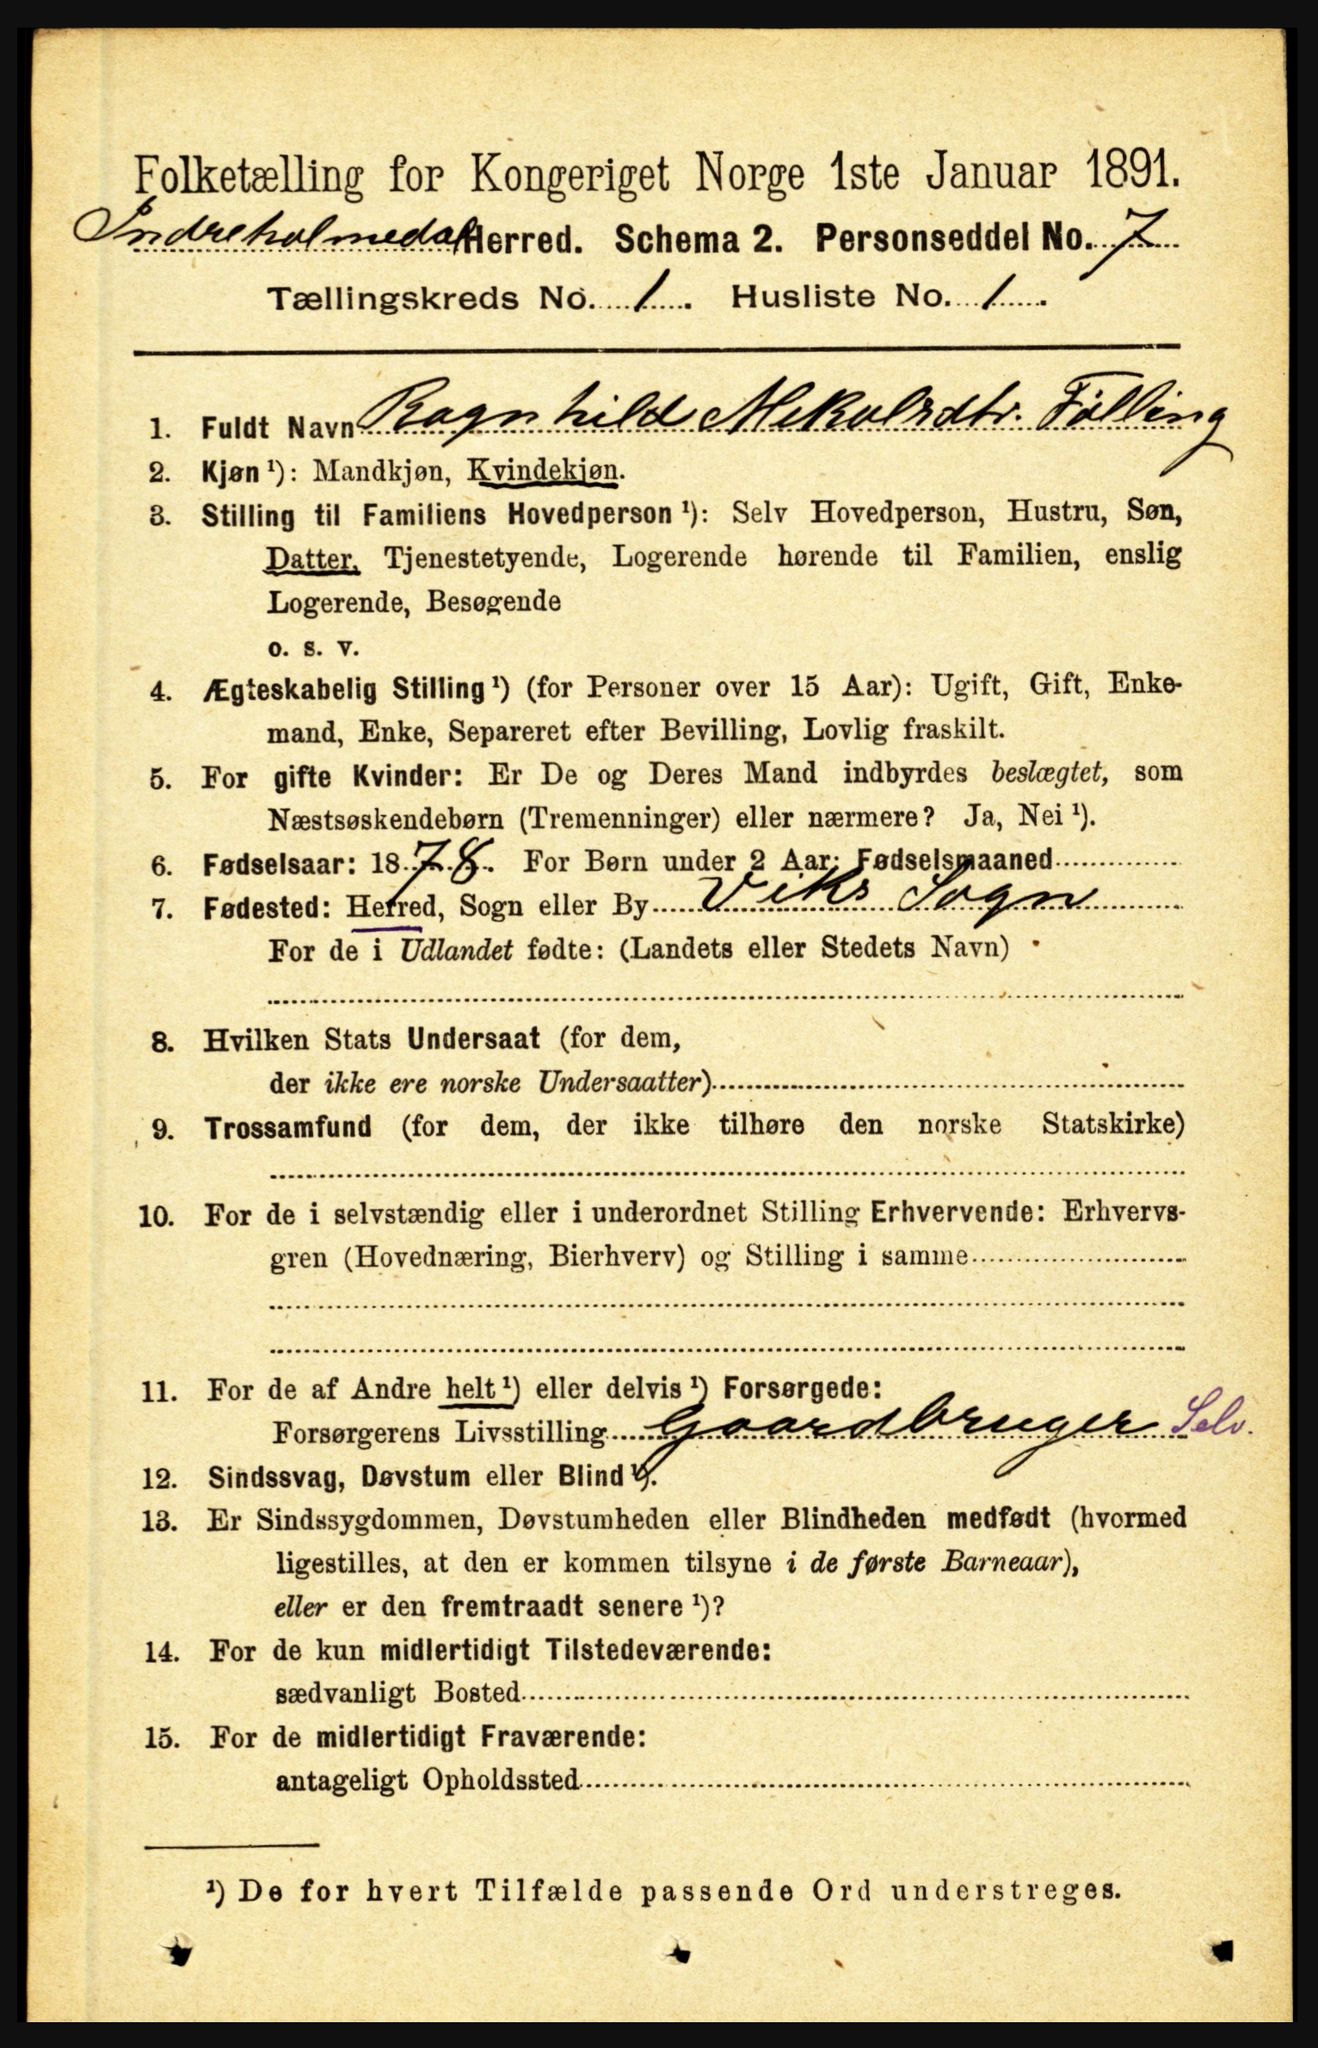 Folketælling for Kongeriget Norge 1ste Januar 1891.
Indreholmedal Herred. Schema 2. Personseddel No. 7
Tællingskreds No. 1. Husliste No. 1.
1. Fuldt Navn Ragnhild Mikalsdtr. Fölling
2. Kjøn ¹): Mandkjøn, Kvindekjøn.
3. Stilling til Familiens Hovedperson ¹): Selv Hovedperson, Hustru, Søn,
Datter, Tjenestetyende, Logerende hørende til Familien, enslig
Logerende, Besøgende
o. s. v.
4. Ægteskabelig Stilling ¹) (for Personer over 15 Aar): Ugift, Gift, Enke-
mand, Enke, Separeret efter Bevilling, Lovlig fraskilt.
5. For gifte Kvinder: Er De og Deres Mand indbyrdes beslægtet, som
Næstsøskendebørn (Tremenninger) eller nærmere? Ja, Nei ¹).
6. Fødselsaar: 1878. For Børn under 2 Aar: Fødselsmaaned
7. Fødested: Herred, Sogn eller By Viks Sogn
For de i Udlandet fødte: (Landets eller Stedets Navn)
8. Hvilken Stats Undersaat (for dem,
der ikke ere norske Undersaatter)
9. Trossamfund (for dem, der ikke tilhøre den norske Statskirke)
10. For de i selvstændig eller i underordnet Stilling Erhvervende: Erhvervs-
gren (Hovednæring, Bierhverv) og Stilling i samme
11. For de af Andre helt ¹) eller delvis ¹) Forsørgede:
Forsørgerens Livsstilling Gaardbruger Selv.
12. Sindssvag, Døvstum eller Blind ¹).
13. Er Sindssygdommen, Døvstumheden eller Blindheden medfødt (hvormed
ligestilles, at den er kommen tilsyne i de første Barneaar),
eller er den fremtraadt senere ¹)?
14. For de kun midlertidigt Tilstedeværende:
sædvanligt Bosted
15. For de midlertidigt Fraværende:
antageligt Opholdssted
¹) De for hvert Tilfælde passende Ord understreges.